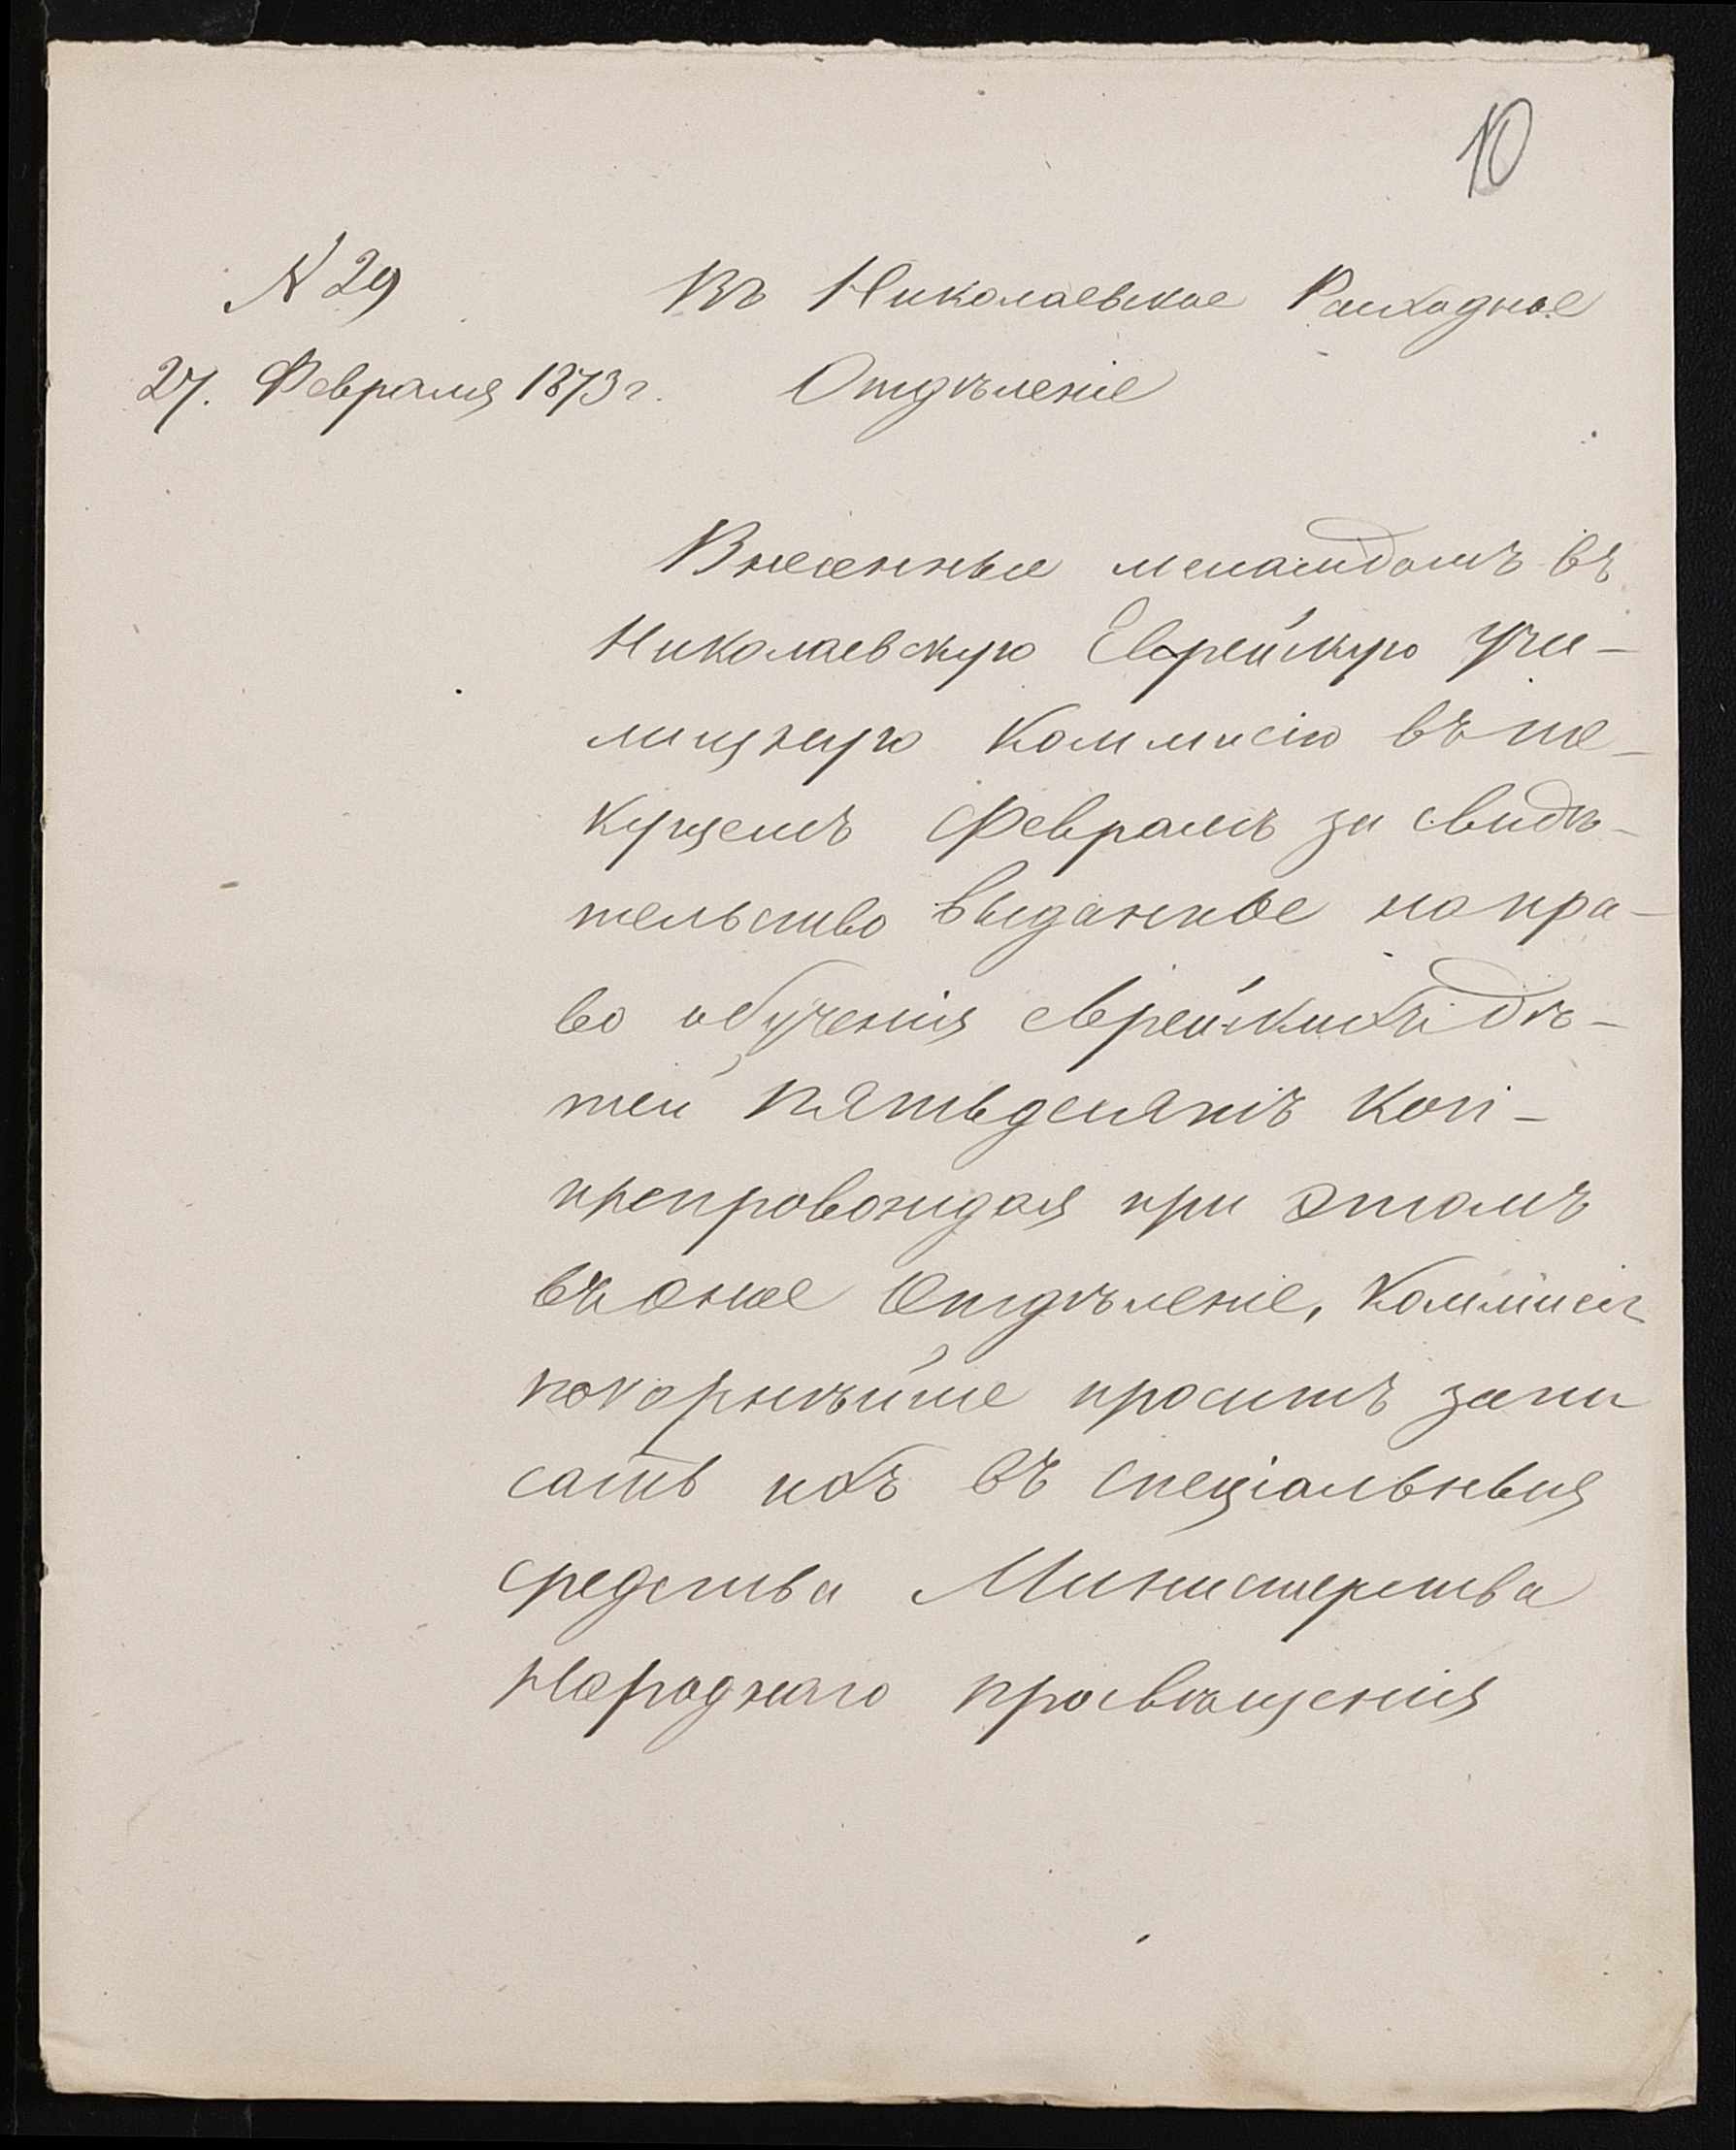 10
№ 29
Въ Николаевское Расходное
27. Февраля 1873 г. Отдѣленіе
Внесенные меламдомъ въ
Николаевскую Еврейскую Учи-
лищную Коммисію въ те-
кущемъ Февралѣ за свидѣ-
тельство выданное на пра-
во обученія еврейскихъ дѣ-
тей пятьдесятъ коп-
препровождая при этомъ
въ оное Отдѣленіе, Коммисія
покорнѣйше проситъ запи
сать ихъ въ спеціальныя
средства Министерства
Народнаго просвѣщенія